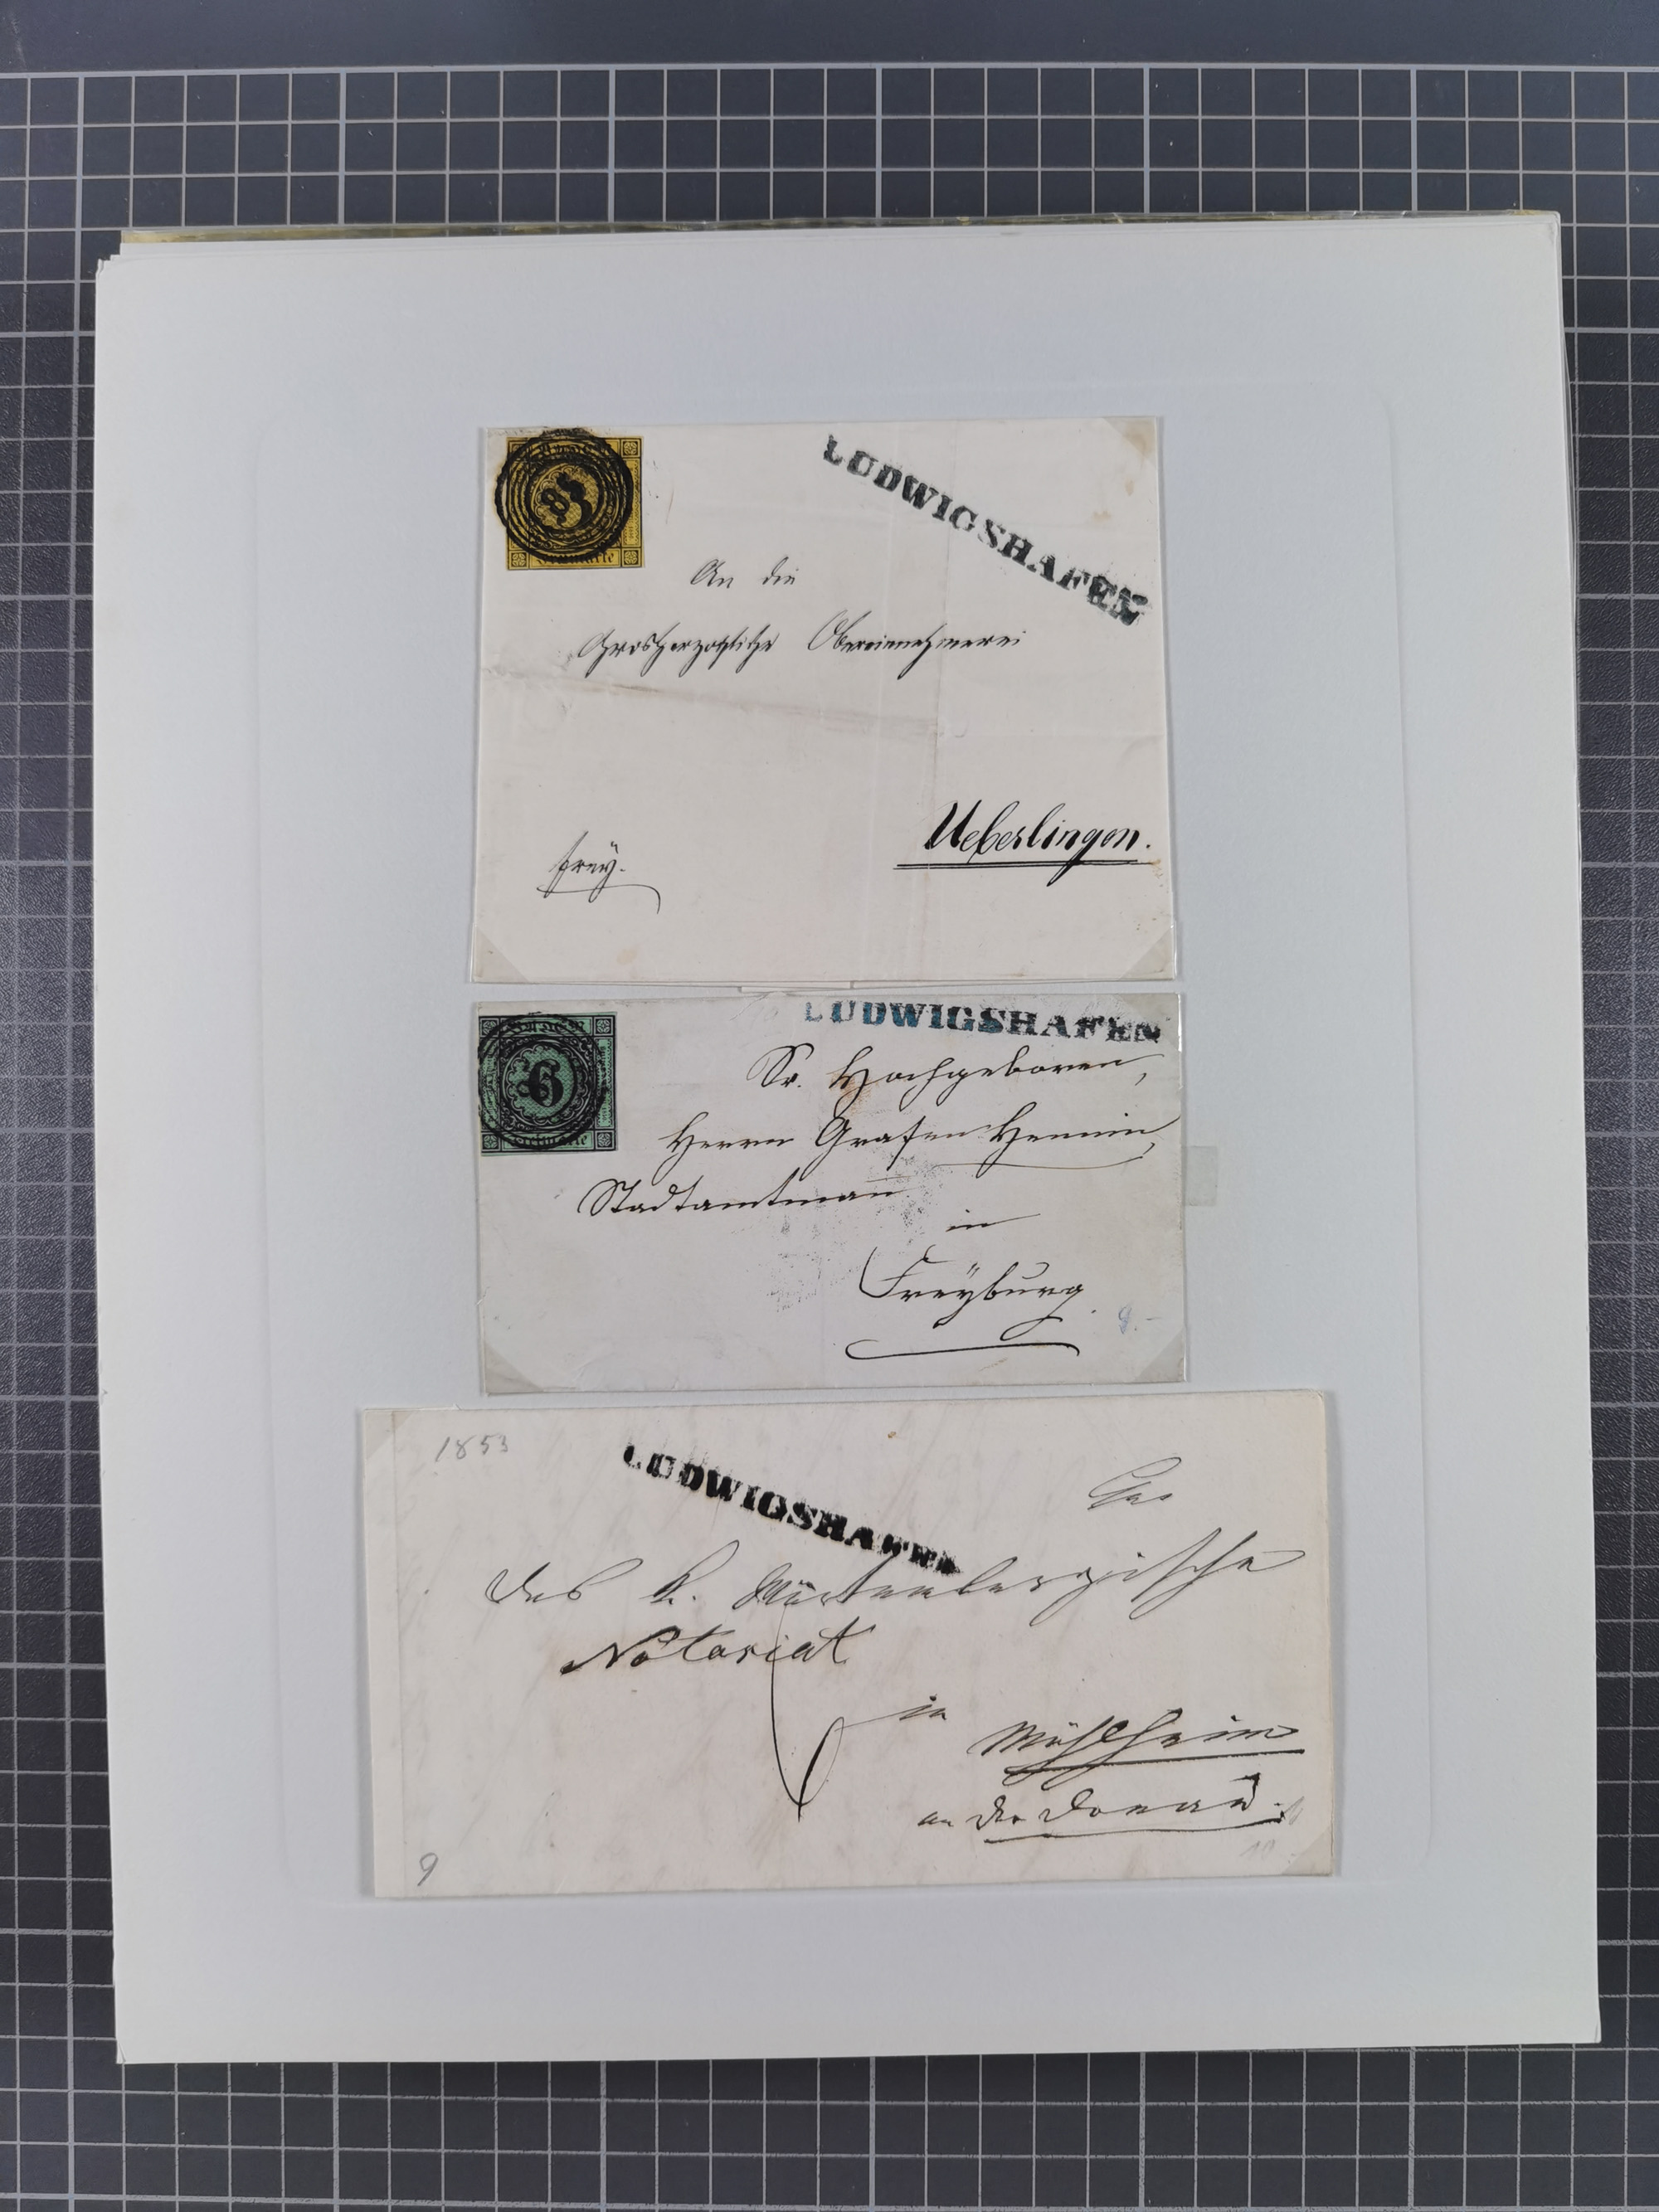 LUDWIGSHAFEN
85
An die
Grosherzogliche Obereinnehmerei
Ueberlingen.
frey.
LUDWIGSHAFEN
6
Sr. Hochgeboren,
Herrn Grafen Hennin,
Stadtamtman
in
Freyburg
9.-
1853
LUDWIGSHAFEN
Das K. Würtenbergische
Notariat
6
in Mühlheim
an der Donau.
9